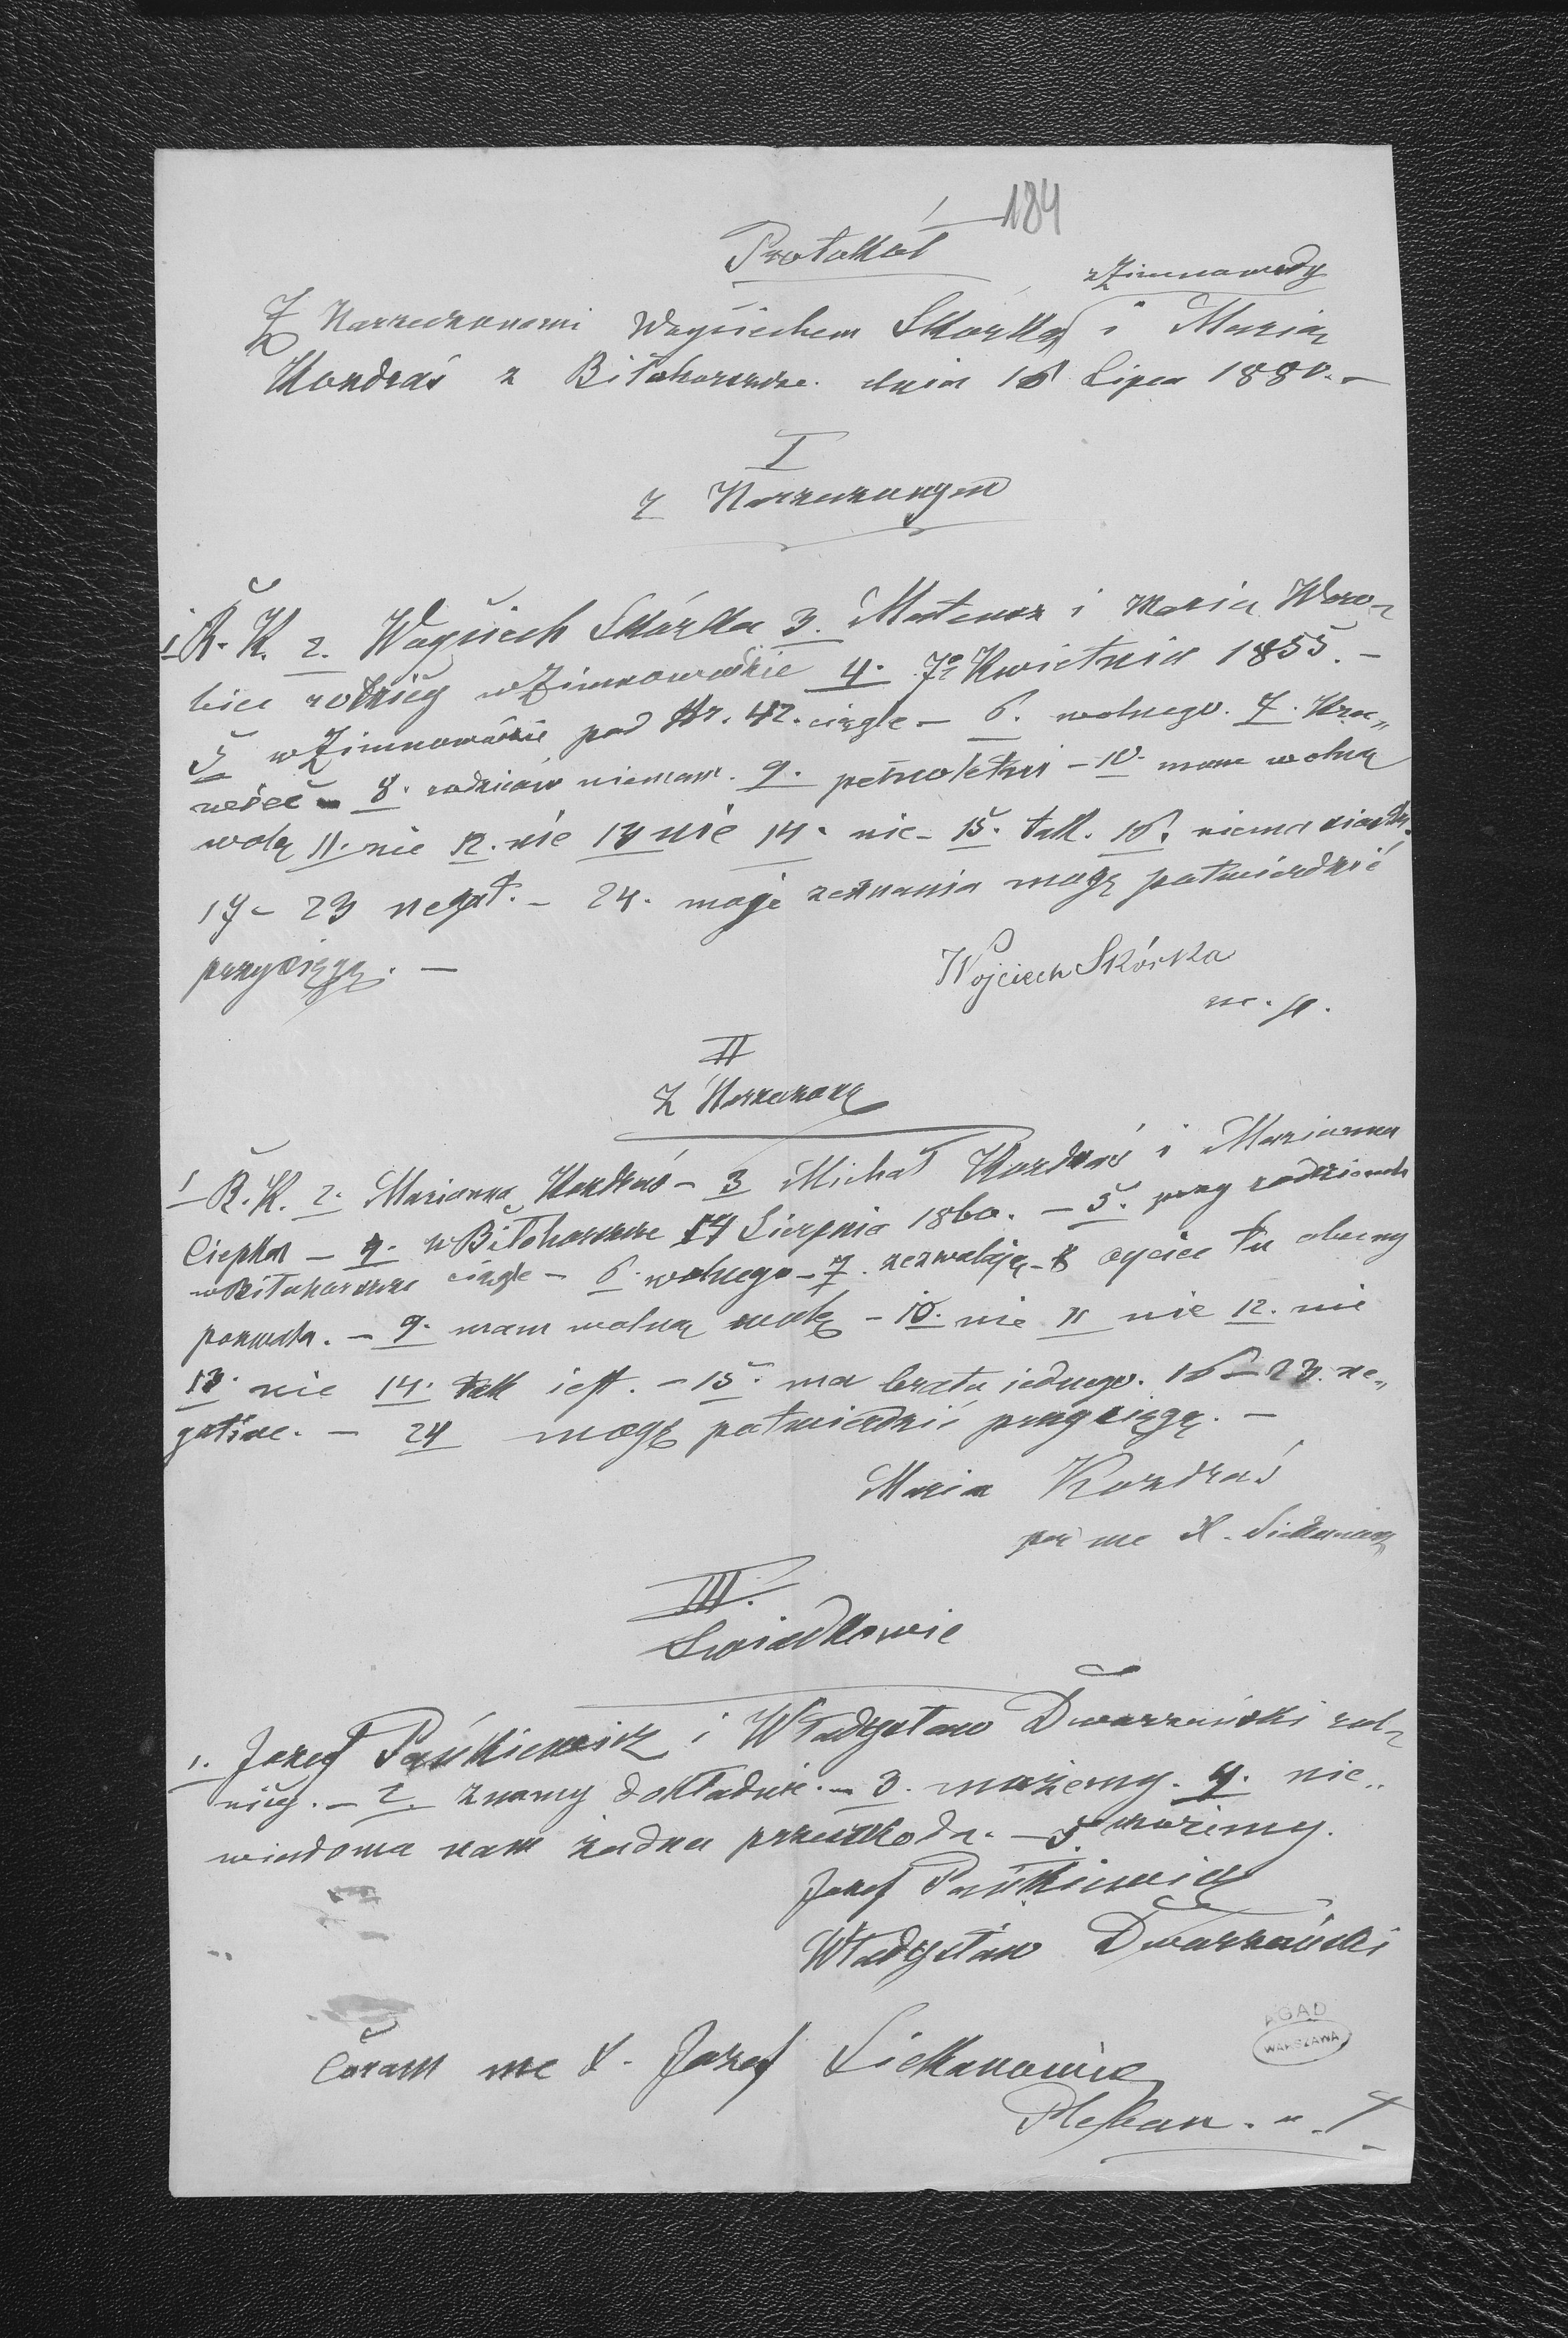 184
Protokół
z Zimnowody
Z Narzeczonemi Wojciechem Skórką i Marią
Kozdraś z Biłohorszcze. dnia 16 Lipca 1880. –
I
z Narzeczonym
1 R. K. 2. Wojciech Skórka 3. Mateusz i Maria Woro-
bice rolnicy w Zimnowodzie 4. 7. Kwietnia 1855. –
5 w Zimnowodzie pod Nr. 42. ciągle – 6. wolnego. 7.
8. rodziców niemam. 9. pełnoletni – 10. mam wolną
wolę 11. nie 12. nie 13 nie 14. nie – 15. tak. 16. niema
17 – 23 negat. – 24. moje zeznania mogę potwierdzić
przysięgą. –
Wojciech Skórka
m. p.
II
Z Narzeczoną
1 R. K. 2. Marianna Kozdraś – 3 Michał Kozdraś i Marianna
Ciepka – 4. w Biłohorszcze 14 Sierpnia 1860. – 5. przy rodzicach
w Biłohorszcze ciągle – 6. wolnego – 7. zezwalają – 8 ojciec tu obecny
pozwala. – 9. mam wolną wolę – 10. nie 11 nie 12. nie
13. nie 14. tak jest. – 15. ma brata jednego. 16 – 23. ne-
gative. – 24 mogę potwierdzić przysięgą. –
Maria Kozdraś
per me X. Siekanowicz
III.
Świadkowie
1. Jozef Pańkiewicz i Władysław Dworzański rol-
nicy. – 2. znamy dokładnie. – 3. możemy. 4. nie-
wiadoma nam żadna przeszkoda. – 5. możemy.
Jozef Pańkiewicz
Władysław Dworzański
Coram me X. Jozef Siekanowicz
Pleban
AGAD
WARSZAWA